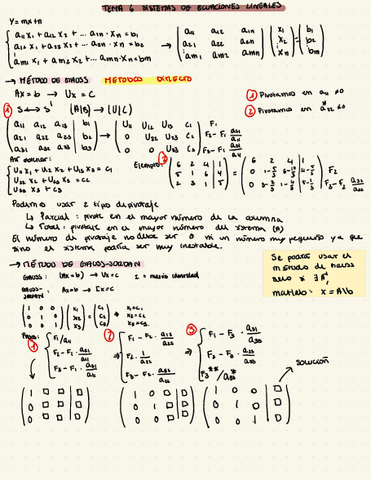 TEMA 6 SISTEMAS DE ECUACIONES LINEALES
Y = mx+n
a11 x1 + a12 x2 + ... a1n · xn = b1
a21 x1 + a22 x2 + ... a2n · xn = b2
am1 x1 + am2 x2 + ... amn · xn = bm
(a11 a12 a1n / a21 a22 a2n / am1 am2 amn) (x1 / x2 / xn) = (b1 / b2 / bm)
→ MÉTODO DE GAUSS MÉTODO DIRECTO
Ax = b → Ux = C
① S ↔ S' (A|B) → (U|C)
① Pivotamos en a11 ≠ 0
② Pivotamos en a22* ≠ 0
(a11 a12 a13 | b1 / a21 a22 a23 | b2 / a31 a32 a33 | b3) → (U11 U12 U13 C1 / 0 U22 U23 C2 / 0 0 U33 C3) F1 / F2 - F1 a21/a11
Así obtener:
U11 x1 + U12 x2 + U13 x3 = C1
U22 x2 + U23 x3 = C2
U33 x3 = C3
Ejemplo:
(6 2 4 | 1 / 5 1 6 | 4 / 2 3 1 | 5)
Podemos usar 2 tipos de pivotaje
↳ Parcial: pivote en el mayor número de la columna
↳ Total: pivotaje en el mayor número del sistema (A)
El número de pivotaje no debe ser 0 ni un número muy pequeño ya que
sino el sistema podría ser muy inestable.
→ MÉTODO DE GAUSS-JORDAN
GAUSS: (Ax=b) → Ux=C I = matriz identidad
GAUSS-JORDAN Ax=b → Ix=C
Se podrá usar el
método de Gauss
solo si ∃ A⁻¹,
matlab: x = A\b
(1 0 0 / 0 1 0 / 0 0 1) (x1 / x2 / x3) = (C1 / C2 / C3) x1 = C1 x2 = C2 x3 = C3
Pasos:
① F1/a11
F2 - F1 · a21/a11
F3 - F1 · a31/a11
②
③
SOLUCIÓN